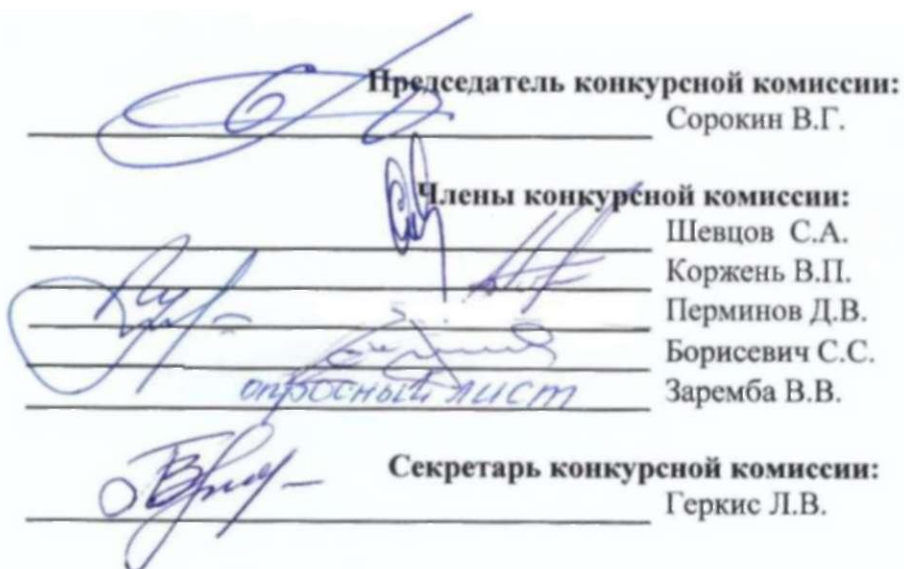 Председатель конкурсной комиссии:
Сорокин В.Г.
Члены конкурсной комиссии:
Шевцов С.А.
Коржень В.П.
Перминов Д.В.
Борисевич С.С.
опросный лист Заремба В.В.
Секретарь конкурсной комиссии:
Геркис Л.В.